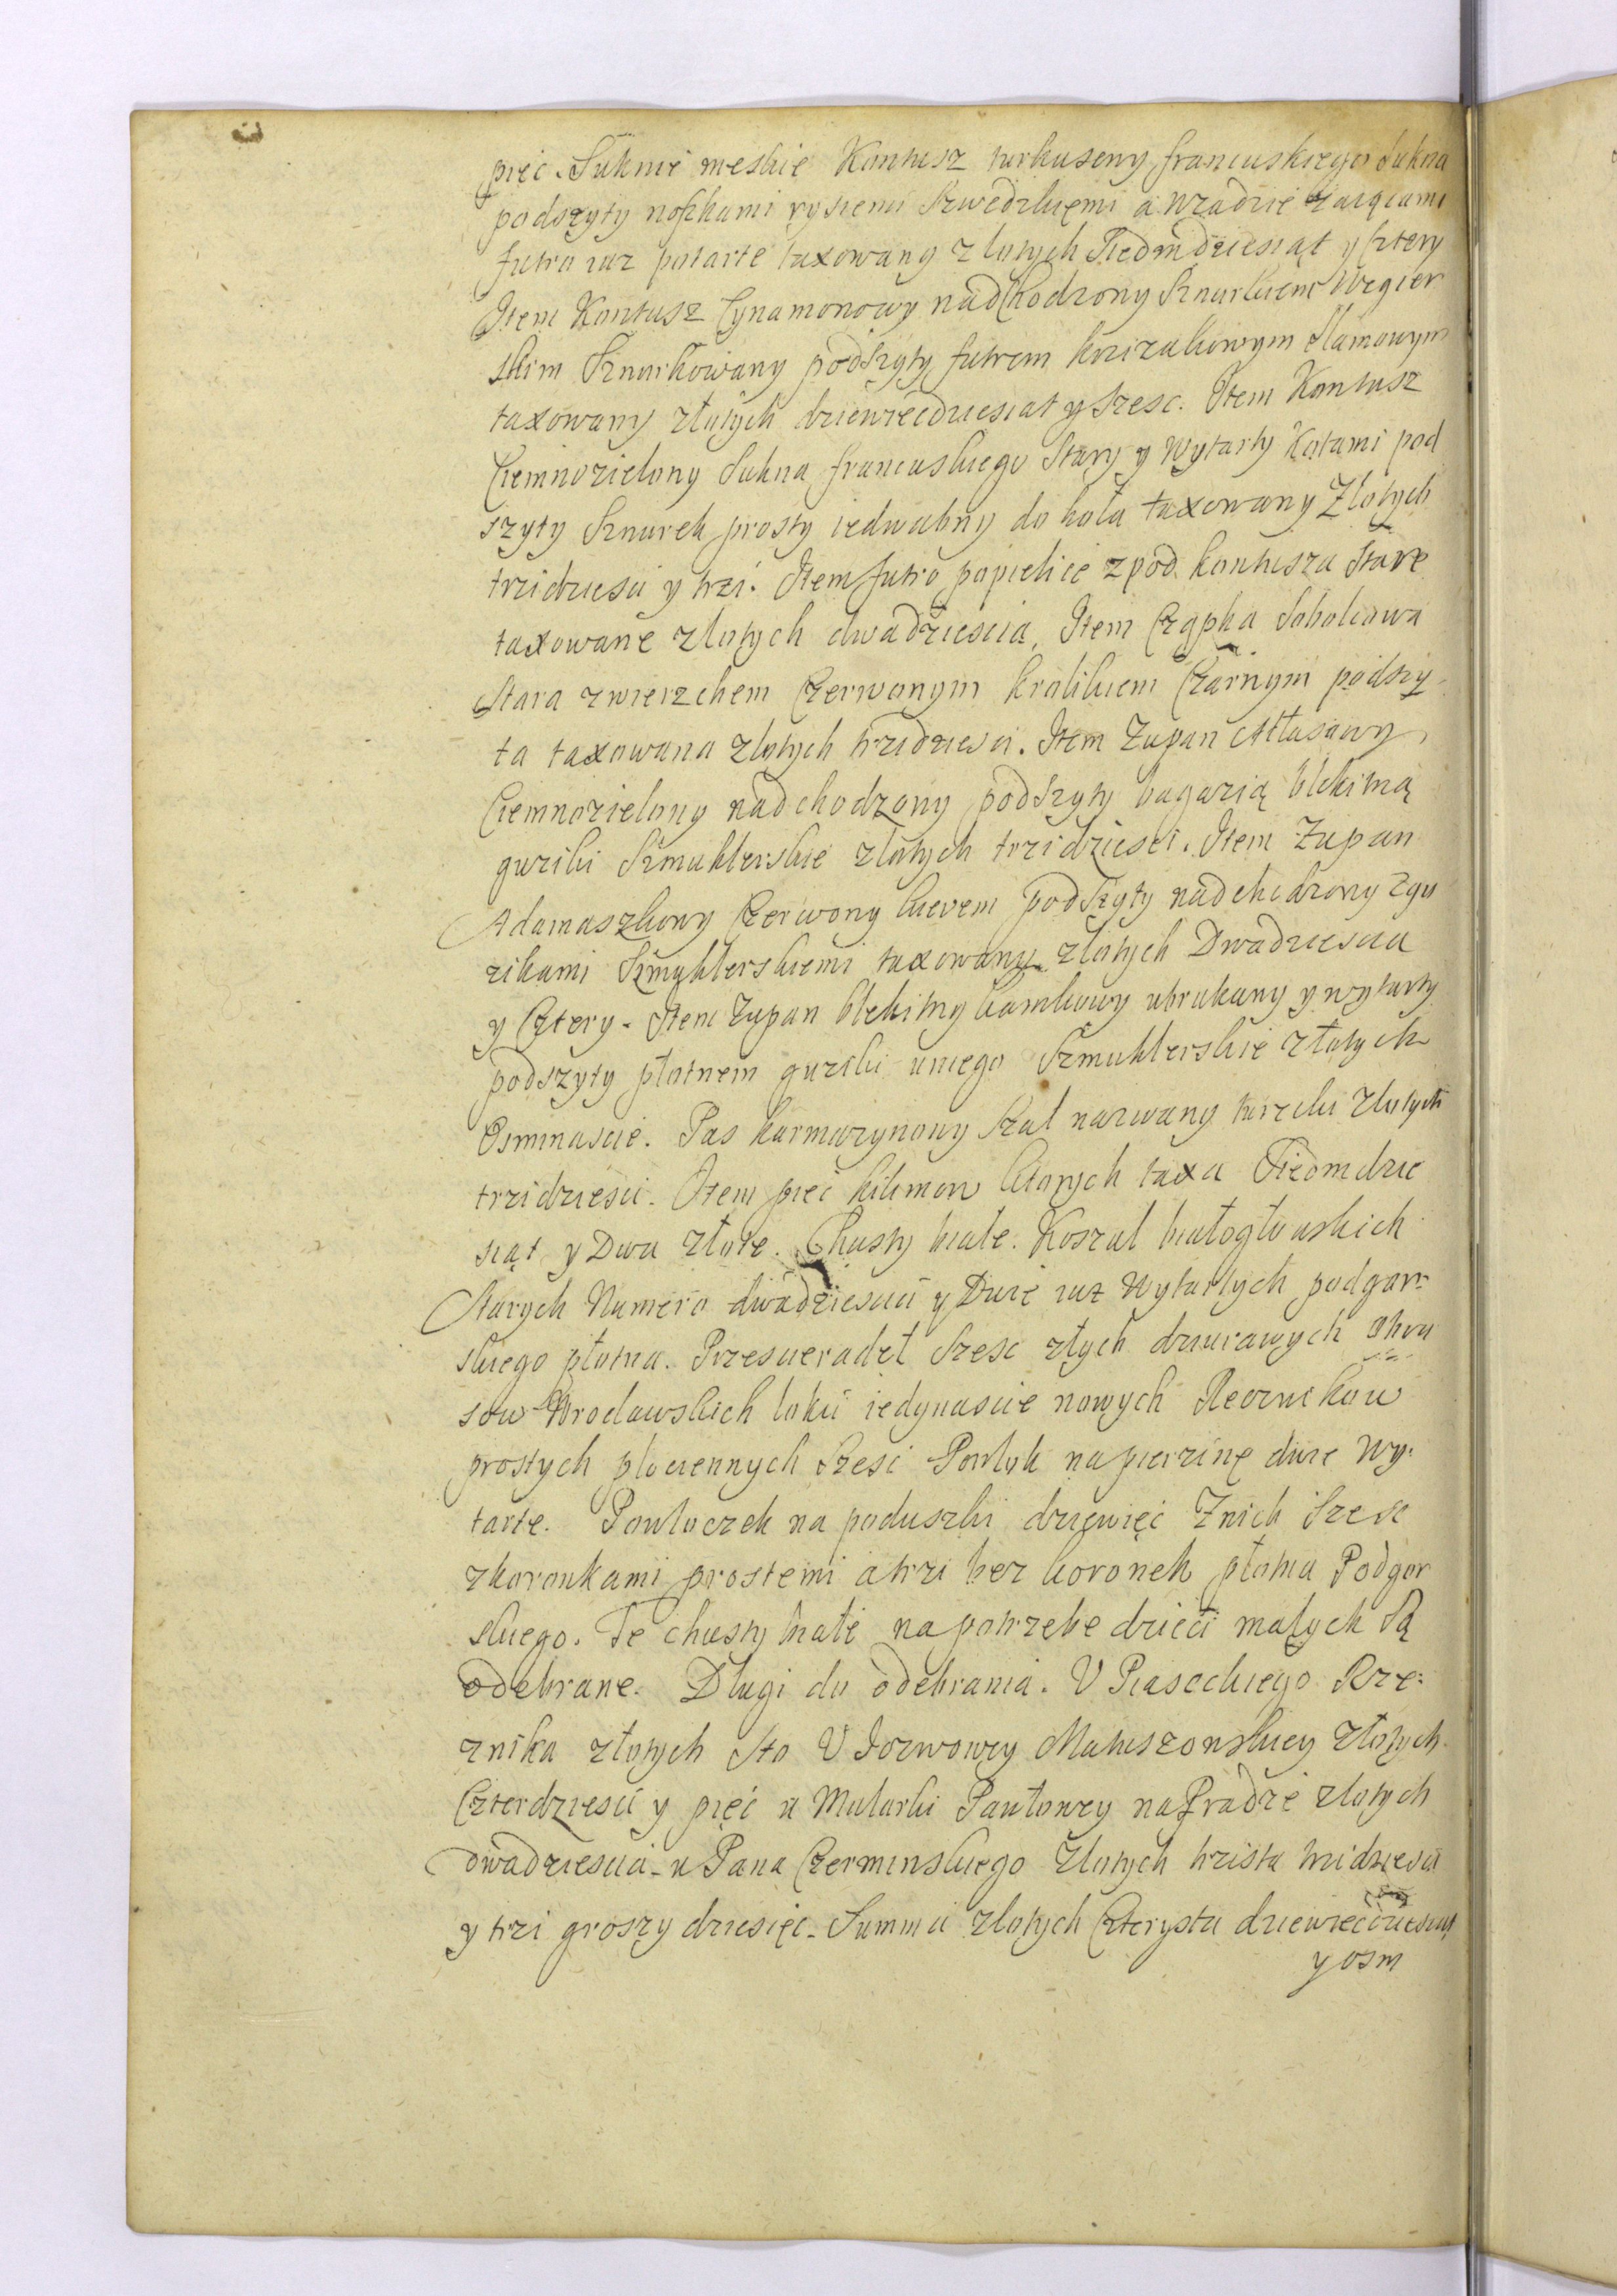 pięc. Suknie meskie Kontusz turkuseny francuskiego sukna
podszyty noszkami rysiemi Szwedzkiemi a wzadzie zaiącami
futro iuz potarte taxowany zlotych Siedmdziesiąt y sztery
Item Kontusz Cynamonowy nadchodzony Sznurkiem Wegier
skim Sznurkowany podszyty futrem kozizukowym slamowym
taxowany złotych dziewiecdziesiat y szesc. Item Kontusz
Ciemnozielony Sukna francuskiego Stary y wytarty Kotami pod
szyty Sznurek prosty iedwabny do kola taxowany Zlotych
trzidziesci y trzi. Item futro popielice zpod kontusza Stare
taxowane zlotych dwadziescia, Item Czapka Sobolowa
Stara zwierzchem Czerwonym krolikiem Czarnym podszy-
ta taxowana zlotych trzidziesci. Item Zupan Atlasowy
Ciemnozielony nadchodzony podszyty bagazią blekitną
guziki Szmuklerskie zlotych trzidziesci. Item Zupan
Adamaszkowy Czerwony kierem podszyty nadchodzony zgu
zikami Szmuklerskiemi taxowany zlotych Dwadziescia
y Cztery. Item Zupan blekitny kamkowy ubrukany y wytarty
podszyty płotnem guziki uniego Szmuklerskie złotych
Osminascie. Pas karmazynowy Szal nazwany turecki zlotych
trzidziesci. Item pięc kilimow ktorych taxa Siedmdzie
siąt y Dwa złote. Chusty białe. Koszul białogłowskich
Starych Numero dwadziescia y Dwie iuz wytartych podgor-
skiego płotna. Przescieradeł szesc złych dziurawych obru
sow Wrocławskich łokci iedynascie nowych Recznikow
prostych plociennych Szesc Powlok na pierzinę dwie wy-
tarte. Powloczek na poduszki dziewięc Znich szesc
zkoronkami prostemi a trzi bez koronek płotna Podgor
skiego. Te chusty białe na potrzebe dzieci małych Są
odebrane. Długi do odebrania. U Piaseckiego Rze-
znika złotych sto U Matuszowskiey złotych
Czterdziesci y pięc u Mularki Pawłowey na Pradze zlotych
dwadziescia u Pana Czerminskiego Zlotych trzista trzidziesci
y trzi groszy dziesięc. Summa zlotych Czterysta dziewiecdziesiąt
y osm